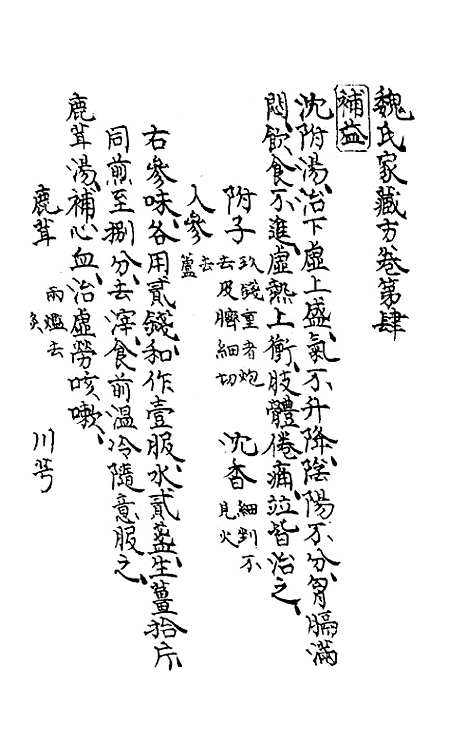 魏氏家藏方卷第肆
補益
沈附湯治下虛上盛氣不升降陰陽不分胷膈滿
悶飲食不進虛熱上衝肢體倦痛竝皆治之
附子玖錢重者炮去皮臍細切 沈香細剉不見火
人參去蘆
右參味各用貳錢和作壹服水貳盞生薑拾片
同煎至捌分去滓食前温冷隨意服之
鹿茸湯補心血治虛勞咳嗽
鹿茸兩燎去 川芎